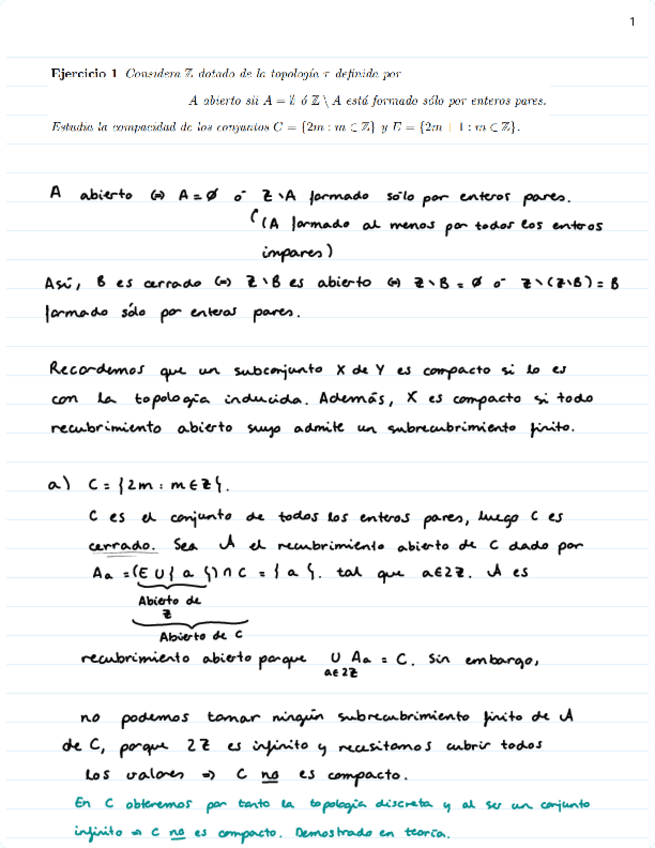 1
Ejercicio 1 Considera ℤ dotado de la topología τ definida por
A abierto sii A = ∅ ó ℤ \ A está formado sólo por enteros pares.
Estudia la compacidad de los conjuntos C = {2m : m ∈ ℤ} y E = {2m + 1 : m ∈ ℤ}.
A abierto ⇔ A = ∅ ó ℤ\A formado sólo por enteros pares.
(A formado al menos por todos los enteros
impares)
Así, B es cerrado ⇔ ℤ\B es abierto ⇔ ℤ\B = ∅ ó ℤ\(ℤ\B) = B
formado sólo por enteros pares.
Recordemos que un subconjunto X de Y es compacto si lo es
con la topología inducida. Además, X es compacto si todo
recubrimiento abierto suyo admite un subrecubrimiento finito.
a) C = {2m : m ∈ ℤ}.
C es el conjunto de todos los enteros pares, luego C es
cerrado. Sea A el recubrimiento abierto de C dado por
Aa = (E ∪ {a}) ∩ C = {a}. tal que a ∈ 2ℤ. A es
Abierto de
ℤ
Abierto de C
recubrimiento abierto porque ∪ Aa = C. Sin embargo,
a ∈ 2ℤ
no podemos tomar ningún subrecubrimiento finito de A
de C, porque 2ℤ es infinito y necesitamos cubrir todos
los valores ⇒ C no es compacto.
En C obtenemos por tanto la topología discreta y al ser un conjunto
infinito ⇒ C no es compacto. Demostrado en teoría.